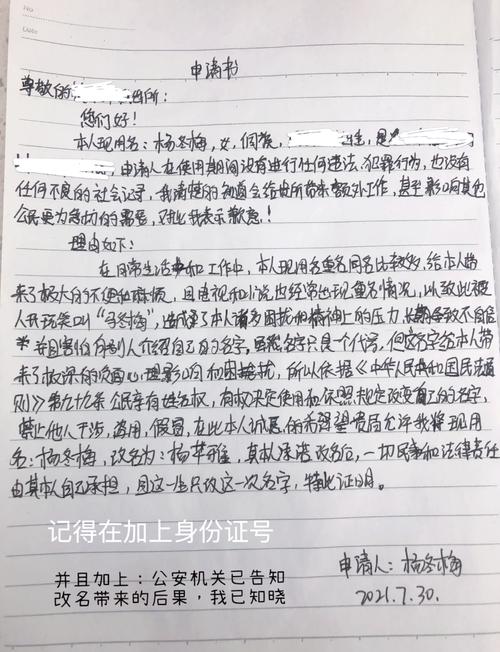 No
Date
申请书
尊敬的 出所：
您们好！
本人现用名：杨冬梅，女，侗族， 生，
申请人在使用期间没有进行任何违法.犯罪行为，也没有
任何不良的社会记录，我清楚的知道会给贵所带来额外工作，甚至影响其他
公民更为急切的需号，对此我表示歉意！
理由如下：
在日常生活和工作中，本人现用名重名同名比较多，给本人带
来了极大的不便和麻烦，且电视和小说也经常出现重名情况，以致此被
人开玩笑叫“马冬梅”，造成了本人诸多困扰和精神上的压力，长期导致不自信
并且害怕向别人介绍自己的名字。虽然名字只是个代号，但这名字给本人带
来了极深的负面心理影响和困扰，所以依据《中华人民共和国民法通
则》第九十九条公民享有姓名权，有权决定使用和依照规定改变自己的名字，
禁止他人干涉，盗用，假冒，在此本人诚恳的希望贵局允许我将现用
名：杨冬梅，改名为：杨苹雅，其本人承诺改名后，一切民事和法律责任
由其本人自己承担，且这一生只改这一次名字，特此证明。
记得在加上身份证号
并且加上：公安机关已告知
改名带来的后果，我已知晓
申请人：杨冬梅
2021.7.30.